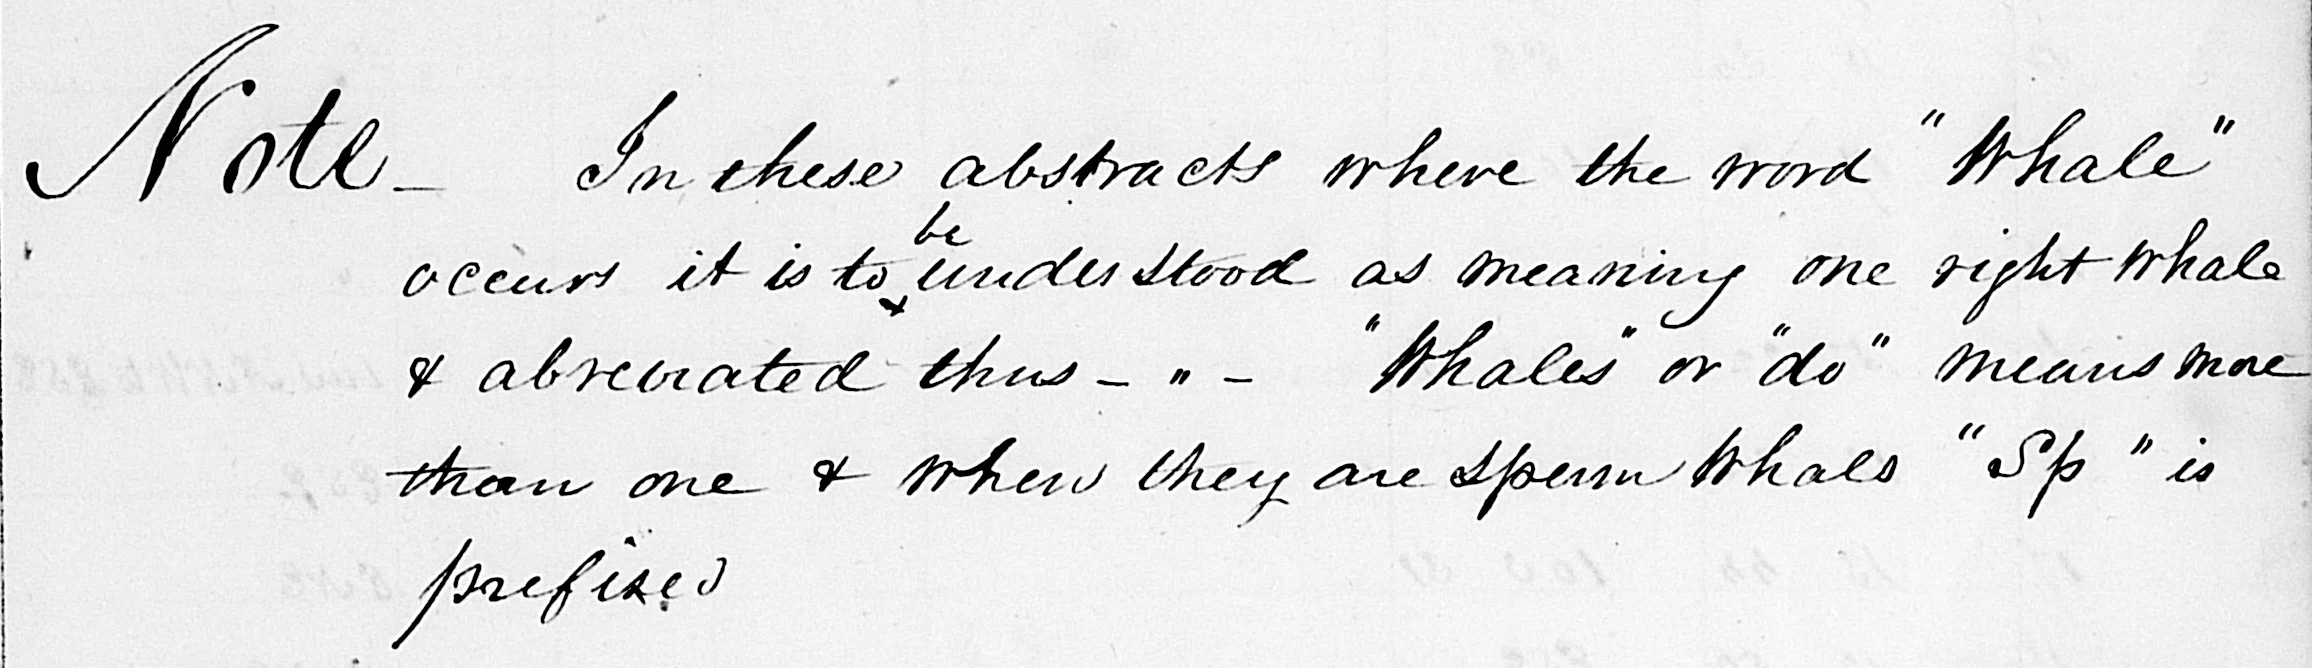 Note - In these abstracts where the word "Whale"
occurs it is to be understood as meaning one right whale
& abreviated thus - " - "Whales" or "do" means more
than one & when they are sperm whals "Sp" is
prefixed